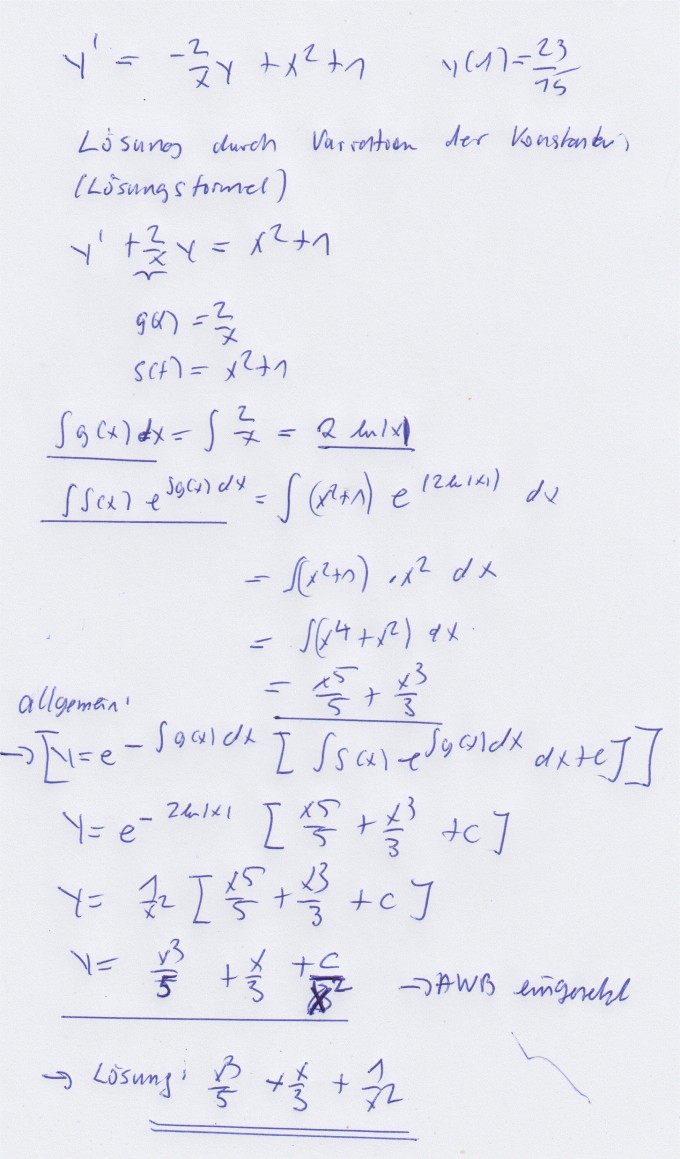 y' = -2/x y + x² + 1    y(1) = 23/15
Lösung durch Variation der Konstanten
(Lösungsformel)
y' + 2/x y = x² + 1
g(x) = 2/x
s(x) = x² + 1
∫g(x) dx = ∫ 2/x = 2 ln|x|
∫s(x) e^∫g(x) dx = ∫(x²+1) e^(2 ln|x|) dx
= ∫(x²+1) · x² dx
= ∫(x⁴ + x²) dx
= x⁵/5 + x³/3
allgemein:
→ [y = e^-∫g(x) dx [∫s(x) · e^∫g(x) dx dx + c]]
y = e^-2 ln|x| [x⁵/5 + x³/3 + c]
y = 1/x² [x⁵/5 + x³/3 + c]
y = x³/5 + x/3 + c/x²    → AWB eingesetzt
→ Lösung: x³/5 + x/3 + 1/x²